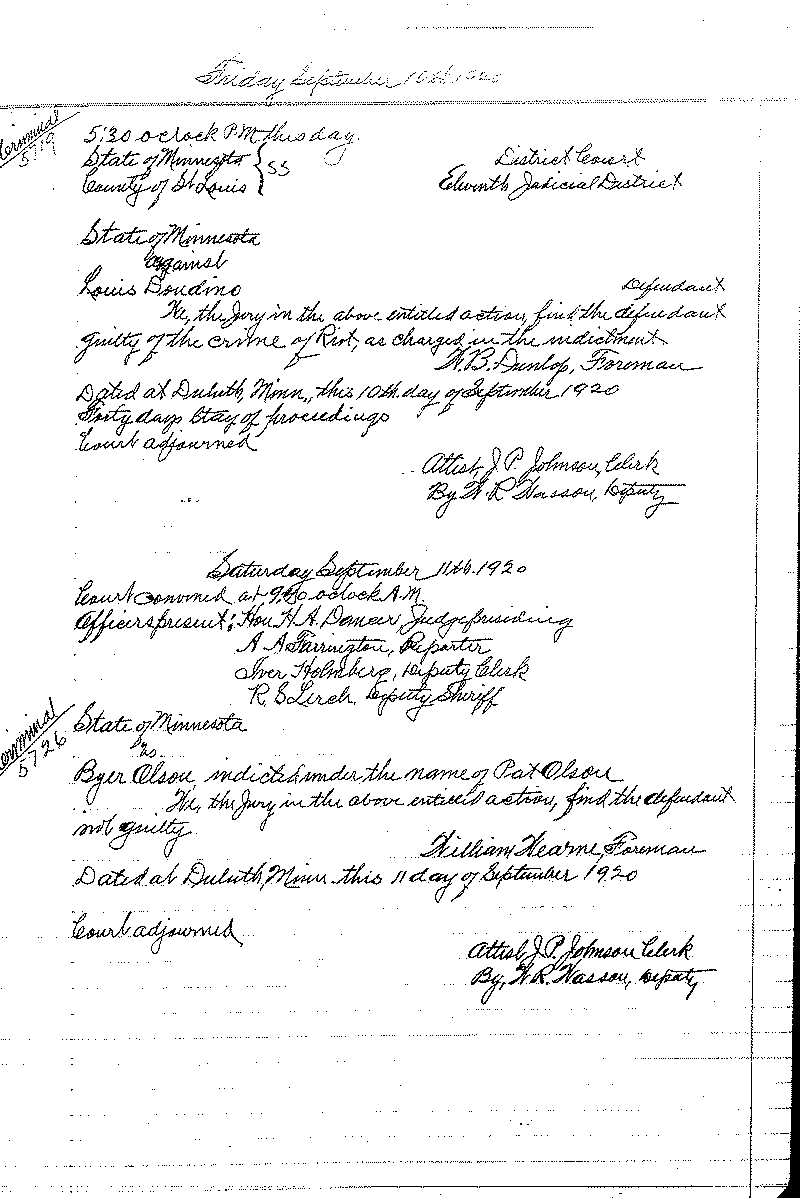 Friday September 10th 1920
Criminal
5719
5:30 o'clock P.M. this day.
State of Minnesota } SS
County of St Louis
District Court
Eleventh Judicial District
State of Minnesota
against
Louis Dondino
Defendant
We, the Jury in the above entitled action, find the defendant
guilty of the crime of Riot, as charged in the indictment
W.B. Dunlop, Foreman
Dated at Duluth, Minn, this 10th day of September 1920
Forty days Stay of proceedings
Court adjourned
Attest, J. P. Johnson, Clerk
By W. R. Wasson, Deputy
Saturday September 11th 1920
Court convened at 9:20 o'clock A.M.
Officers present: Hon H. A. Dancer Judge presiding
A A Farrington, Reporter
Iver Holmberg, Deputy Clerk
R. S Lerch, Deputy Sheriff
Criminal
5726
State of Minnesota
vs
Byer Olson, indicted under the name of Pat Olson
We, the Jury in the above entitled action, find the defendant
not guilty
William Hearne, Foreman
Dated at Duluth, Minn this 11 day of September 1920
Court adjourned
Attest J. P. Johnson Clerk
By, W. R. Wasson, Deputy